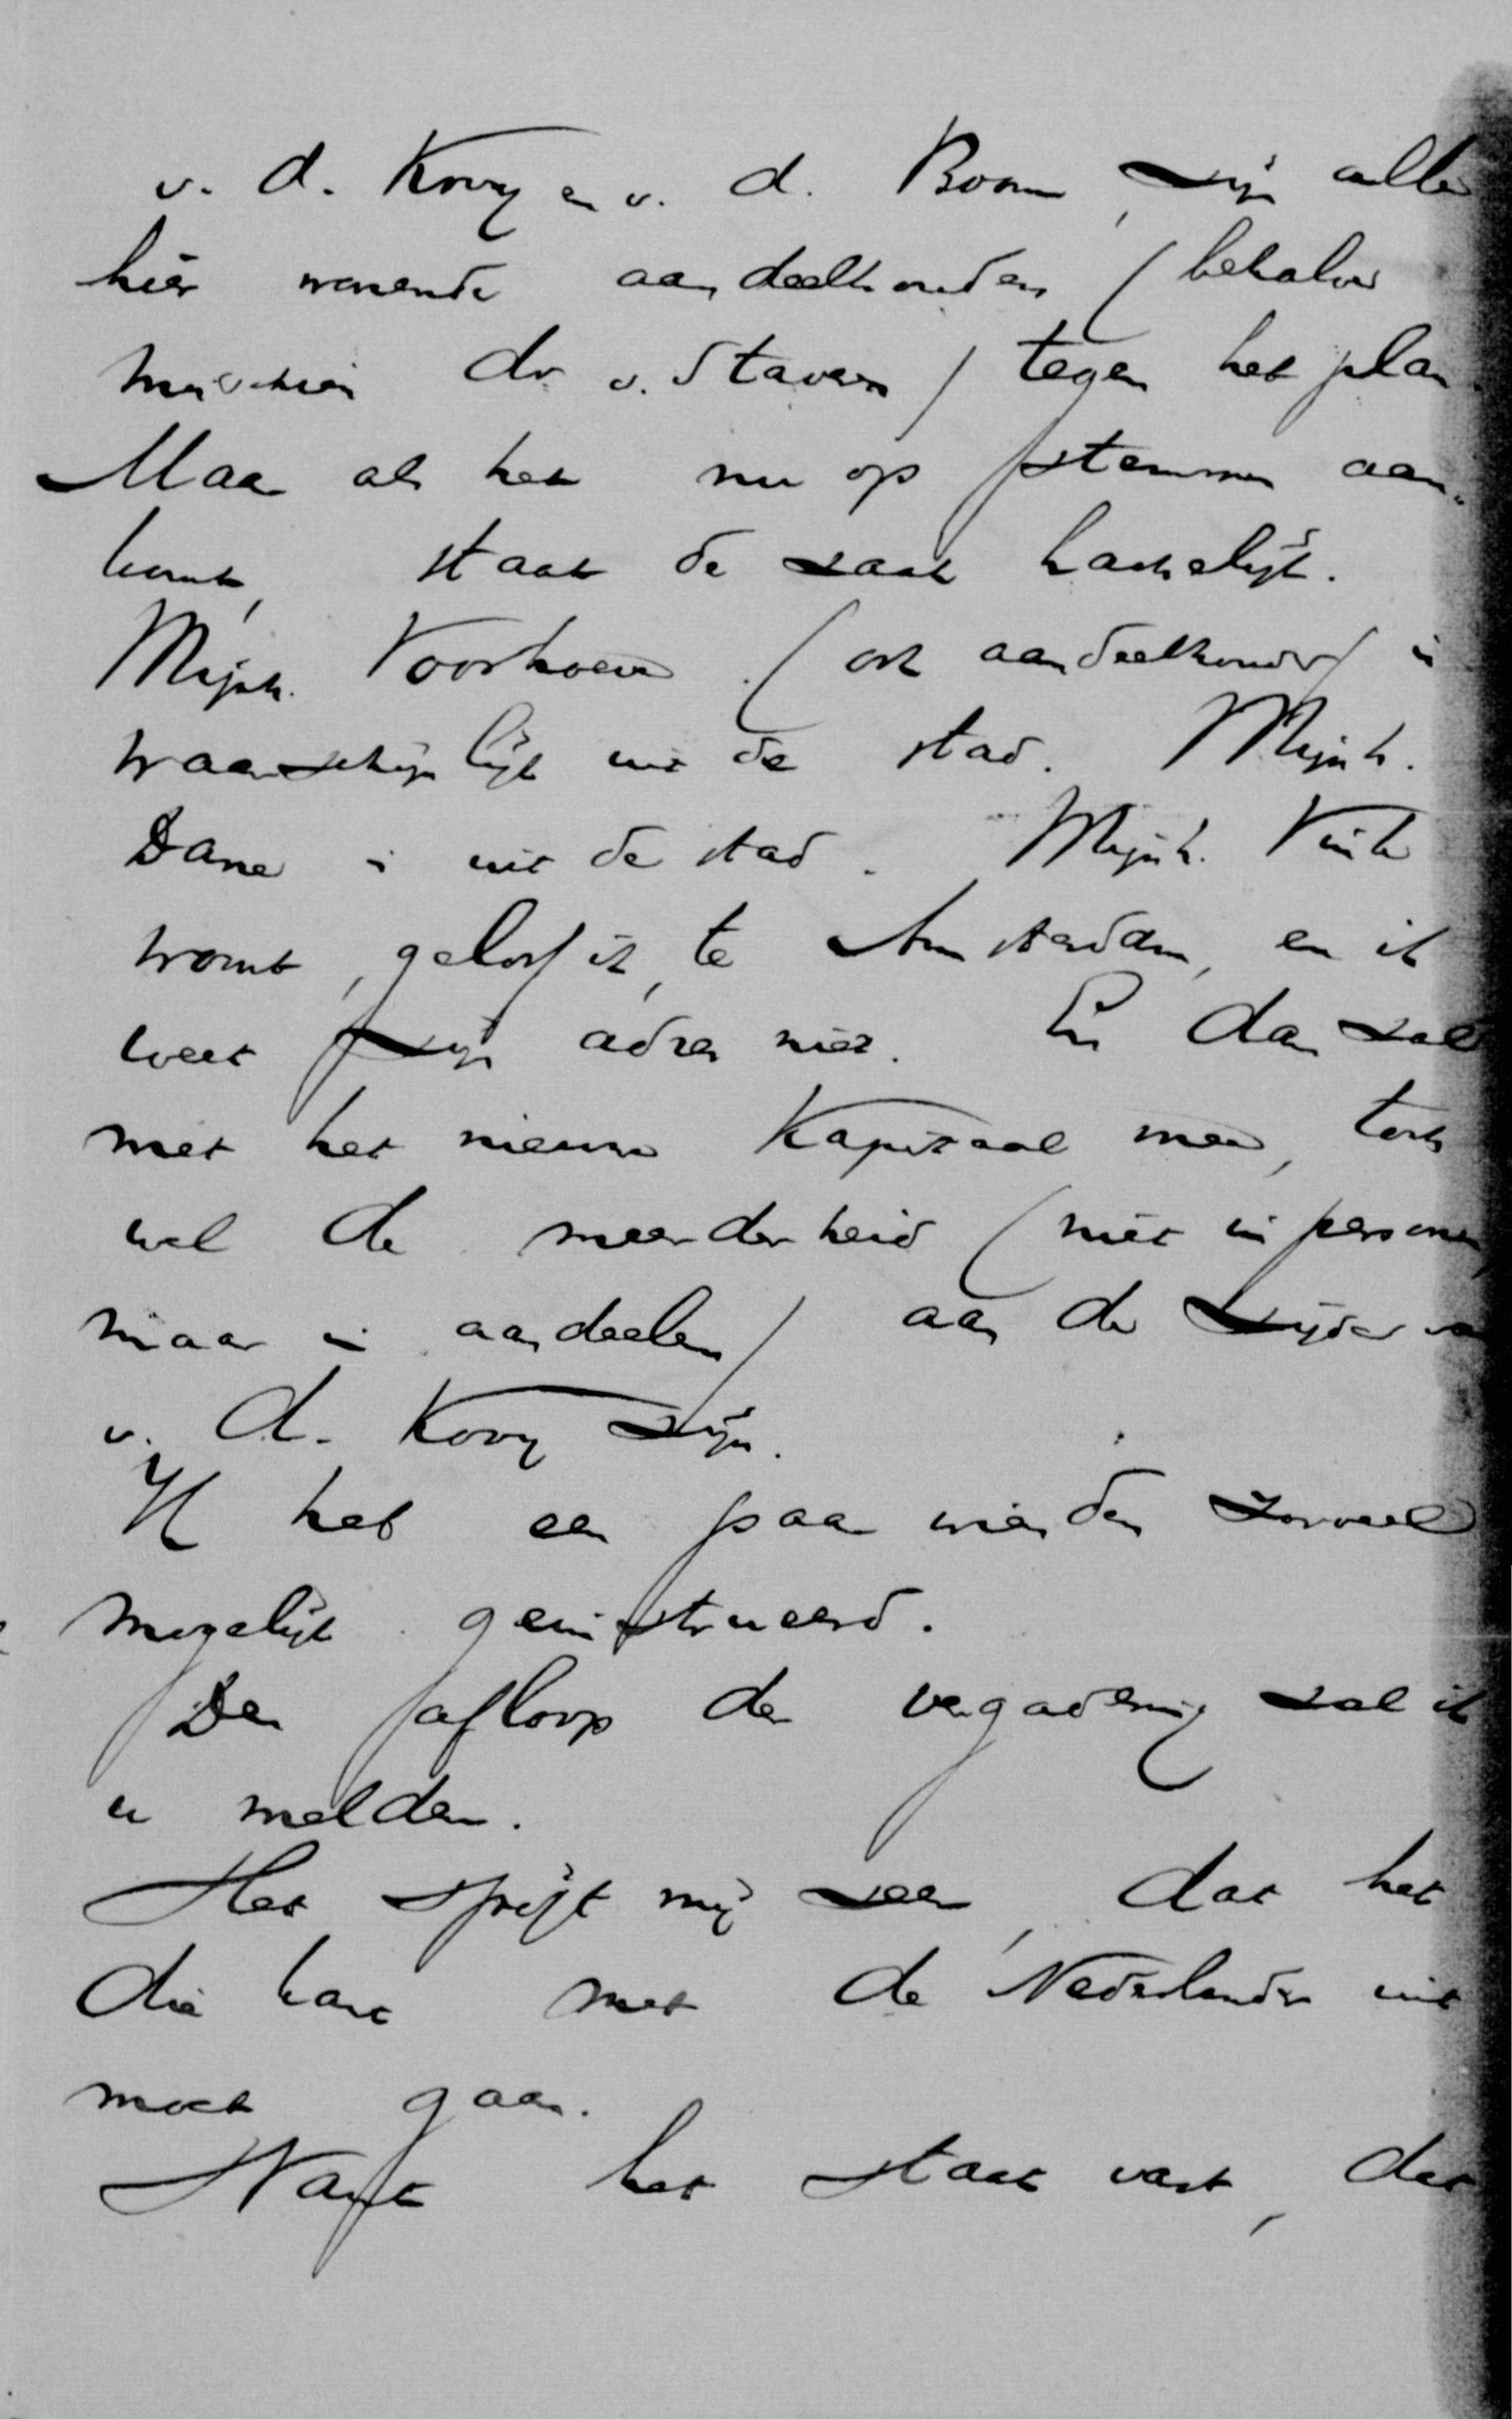 v. d. Kooy en v. d. Boom, zijn alle
hier wonende aandeelhouders (behalve
misschien dr v. Staveren) tegen het plan.
Maar als het nu op stemmen aan-
komt, staat de zaak hachelijk.
Mijnh. Voorhoeve (ook aandeelhouder) is
waarschijnlijk uit de stad. Mijnh.
Dane is uit de stad. Mijnh. Vink
woont, geloof ik, te Amsterdam, en ik
weet zijn adres niet. En dan zal
met het nieuwe Kapitaal mee, toch
wel de meerderheid (niet in personen,
maar in aandeelen) aan de zijde van
v. d. Kooy zijn.
Ik heb een paar vrienden zooveel
mogelijk geinstrueerd.
Den afloop der vergadering zal ik
u melden.
Het spijt mij zeer, dat het
die kant met de Nederlander uit
moet gaan.
Want het staat vast, dat